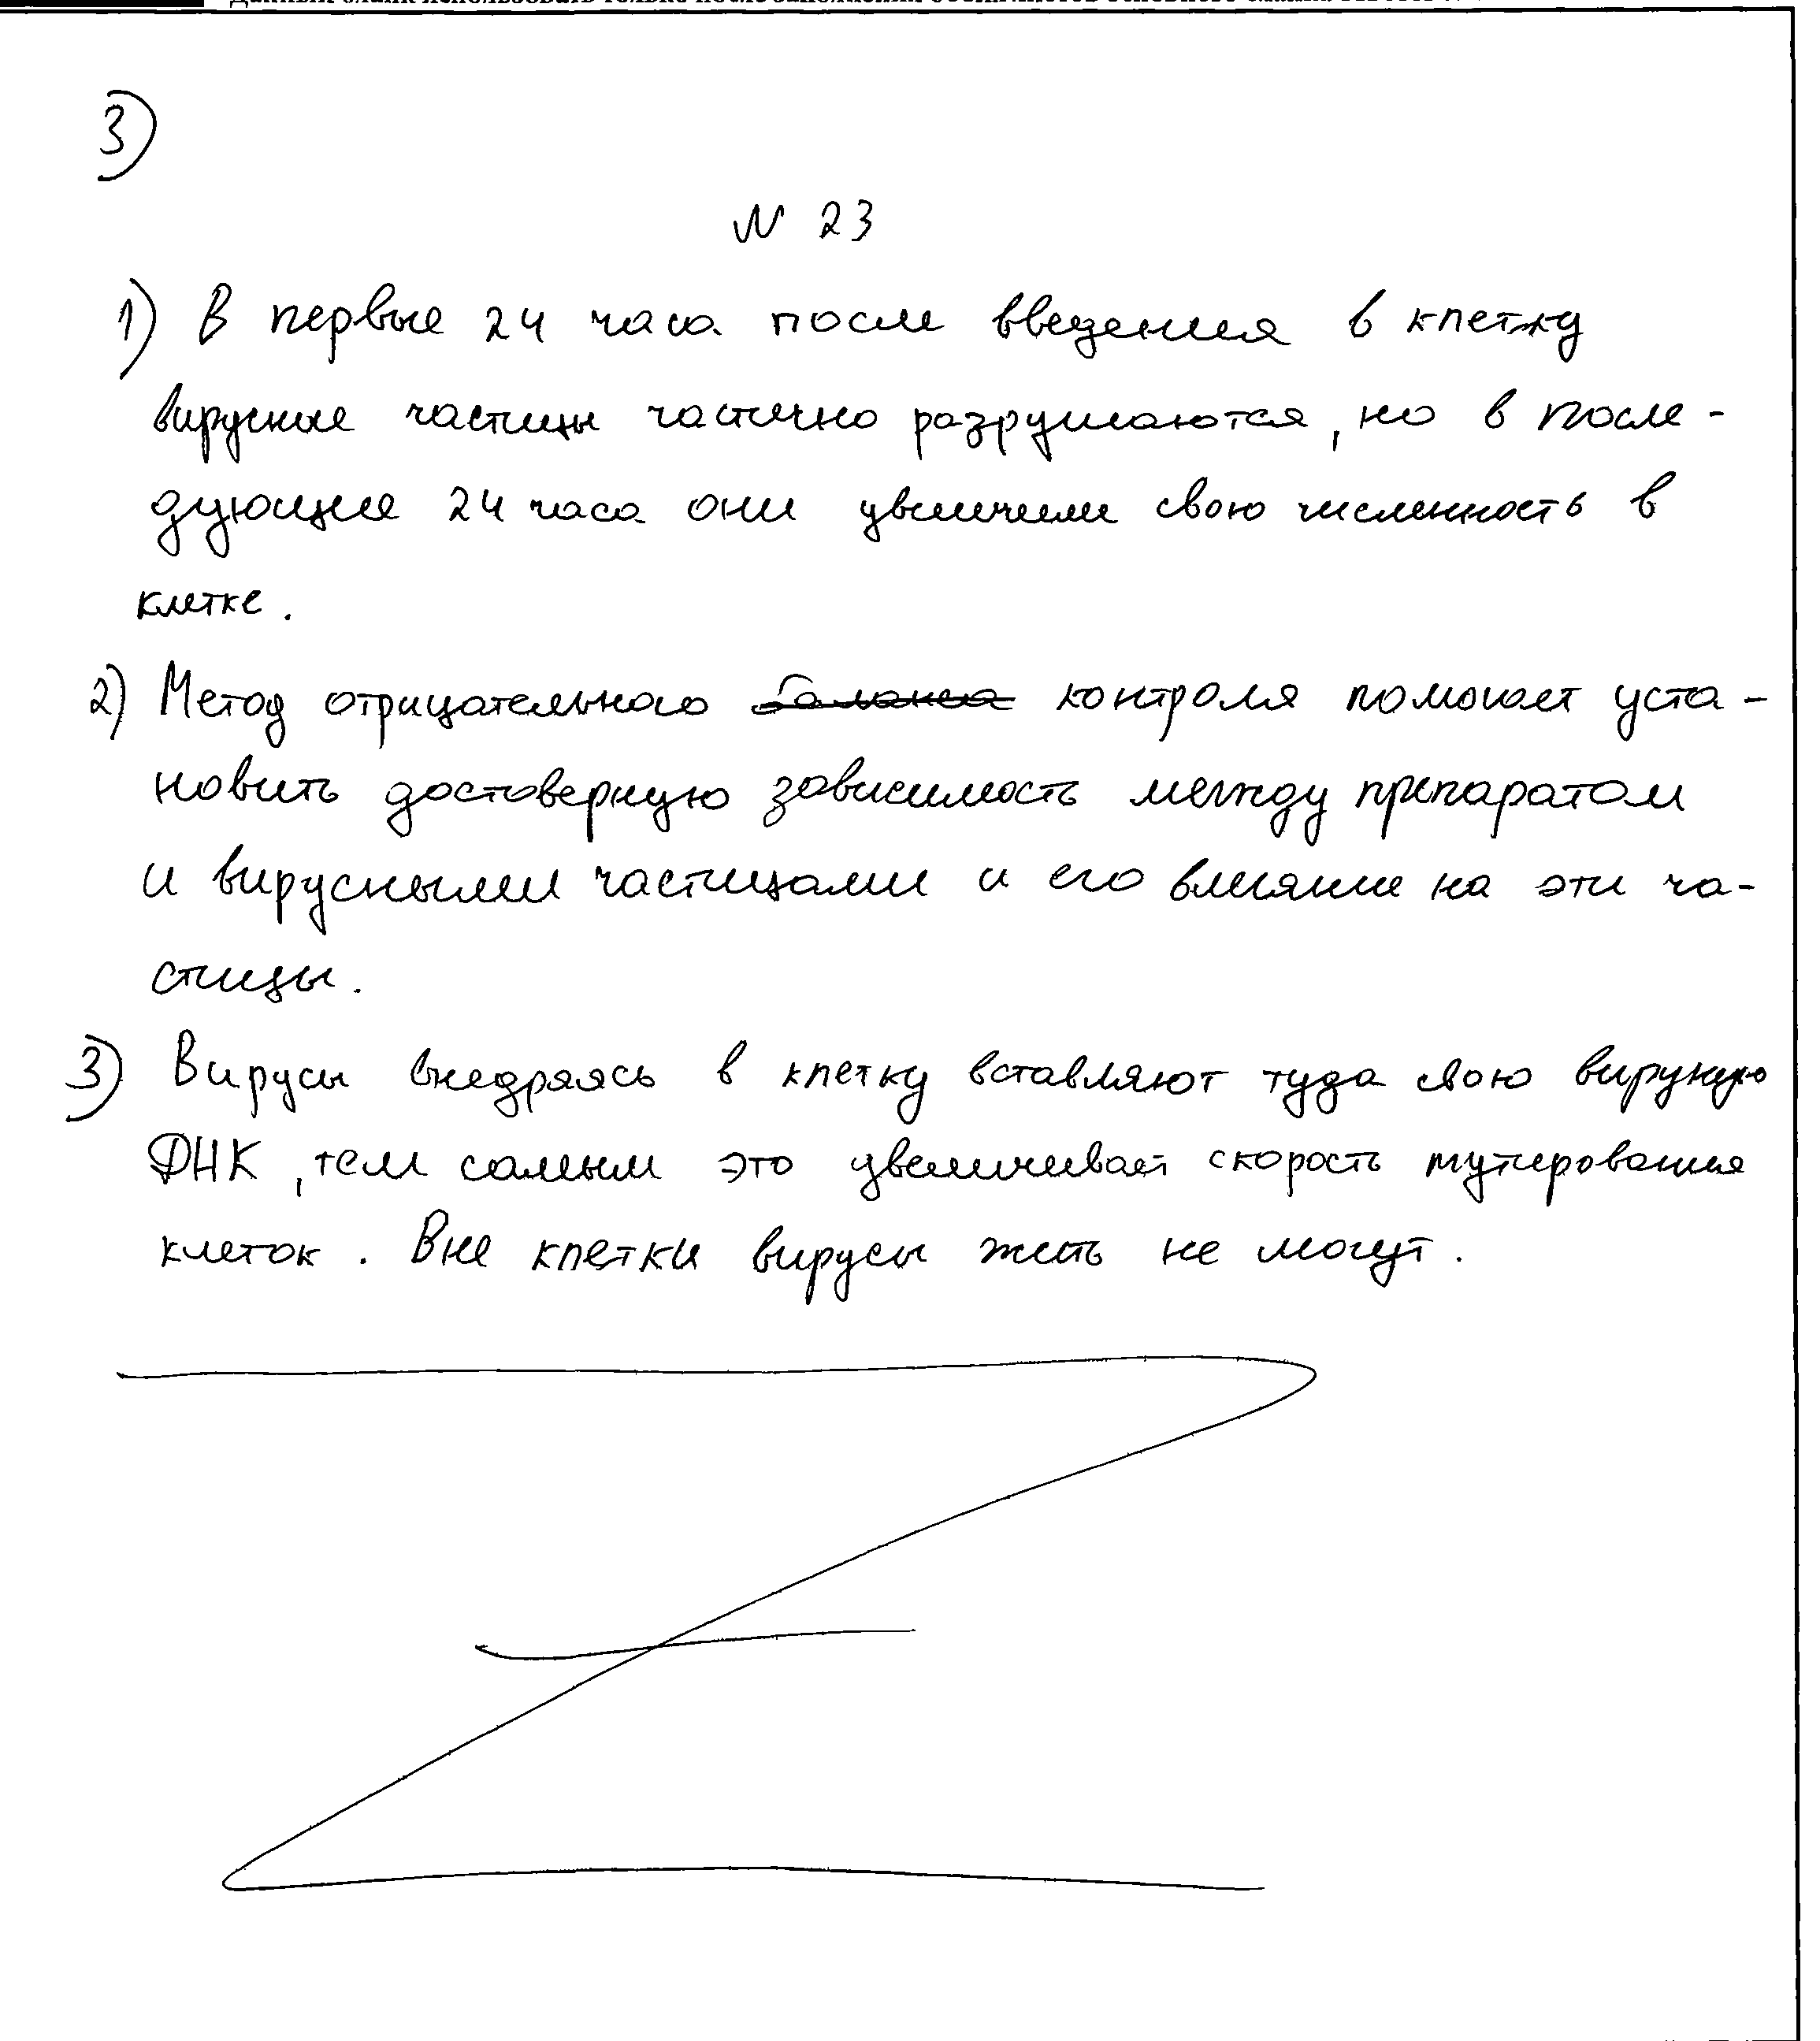 3)
N 23
1) В первые 24 часа после введения в клетку
вирусные частицы частично разрушаются, но в после-
дующие 24 часа они увеличили свою численность в
клетке.
2) Метод отрицательного баланса контроля помогает уста-
новить достоверную зависимость между препаратом
и вирусными частицами и его влияние на эти ча-
стицы.
3) Вирусы внедряясь в клетку вставляют туда свою вирусную
ДНК, тем самым это увеличивает скорость мутирования
клеток. Вне клетки вирусы жить не могут.